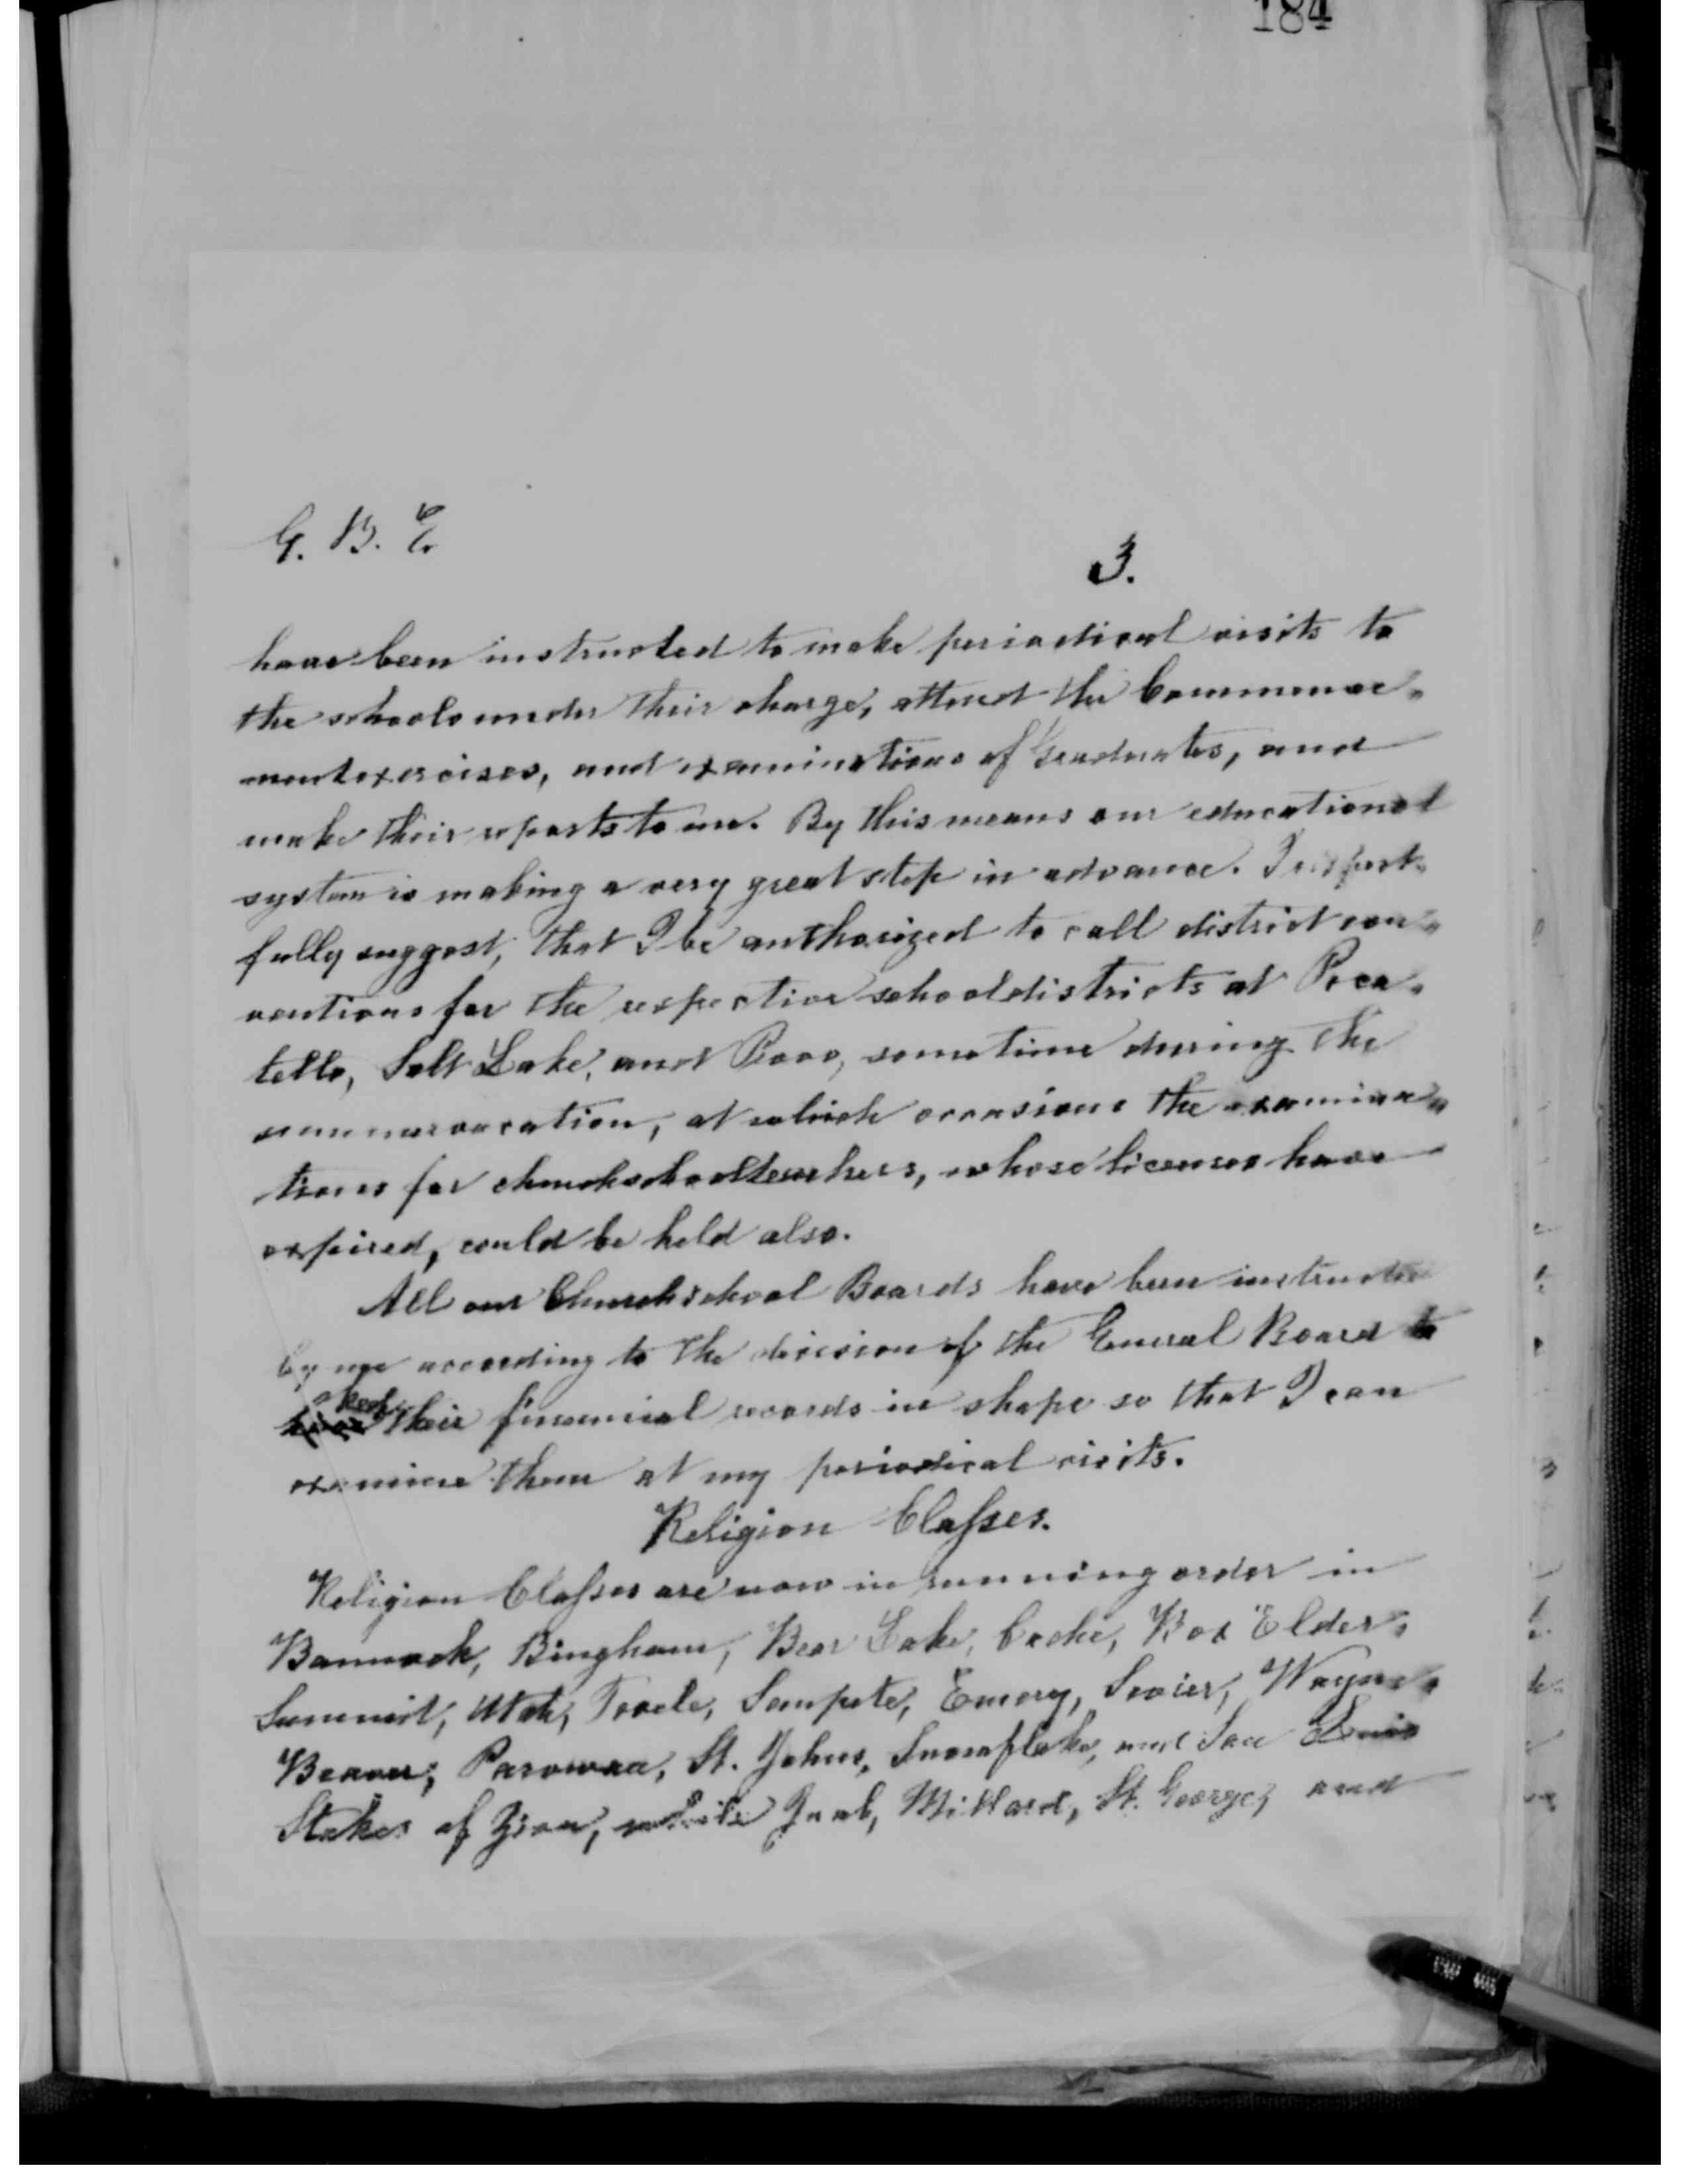 184
G. B. E
3.
have been instructed to make periodical visits to
the schools under their charge, attend the Commence=
mentexercises, and examinations of Graduates, and
make their reports to me. By this means our educational
system is making a very great step in advance. I respect=
fully suggest, that I be authorized to call district con=
ventions for the respective schooldistricts at Poca=
tello, Salt Lake, and Provo, sometime during the
summervacation, at which occasions the examina=
tions for churchschoolteachers, whose licenses have
expired, could be held also.
All our Churchschool Boards have been instructed
by me according to the decision of the General Board to
keep their financial records in shape so that I can
examine them at my periodical visits.
Religion Claſses.
Religion Claſses are now in running order in
Bannock, Bingham, Bear Lake, Cache, Box Elder,
Summit, Utah, Tooele, Sanpete, Emery, Sevier, Wayne,
Beaver, Parowan, St. Johns, Snowflake, and San Luis
Stakes of Zion, while Juab, Millard, St. George, and